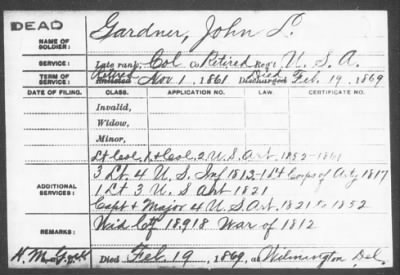 DEAD
NAME OF SOLDIER: Gardner, John L.
SERVICE: Late rank, Col Co Retired Reg't U. S. A.
TERM OF SERVICE: Retired Enlisted Nov. 1, 1861 Died Discharged Feb. 19, 1869
DATE OF FILING. CLASS. APPLICATION NO. LAW. CERTIFICATE NO.
Invalid,
Widow,
Minor,
Lt Col, 1 & Col, 2 U. S. Art. 1852-1861
ADDITIONAL SERVICES: 3 Lt. 4 U. S. Inf 1812-1 Lt Corps of Arty 1817
1 Lt. 3 U S Art 1821
Capt & Major 4 U. S. Art. 1821 to 1852
REMARKS: Wid Ctf 18918. War of 1812
Died Feb. 19, 1869, at Wilmington Del.